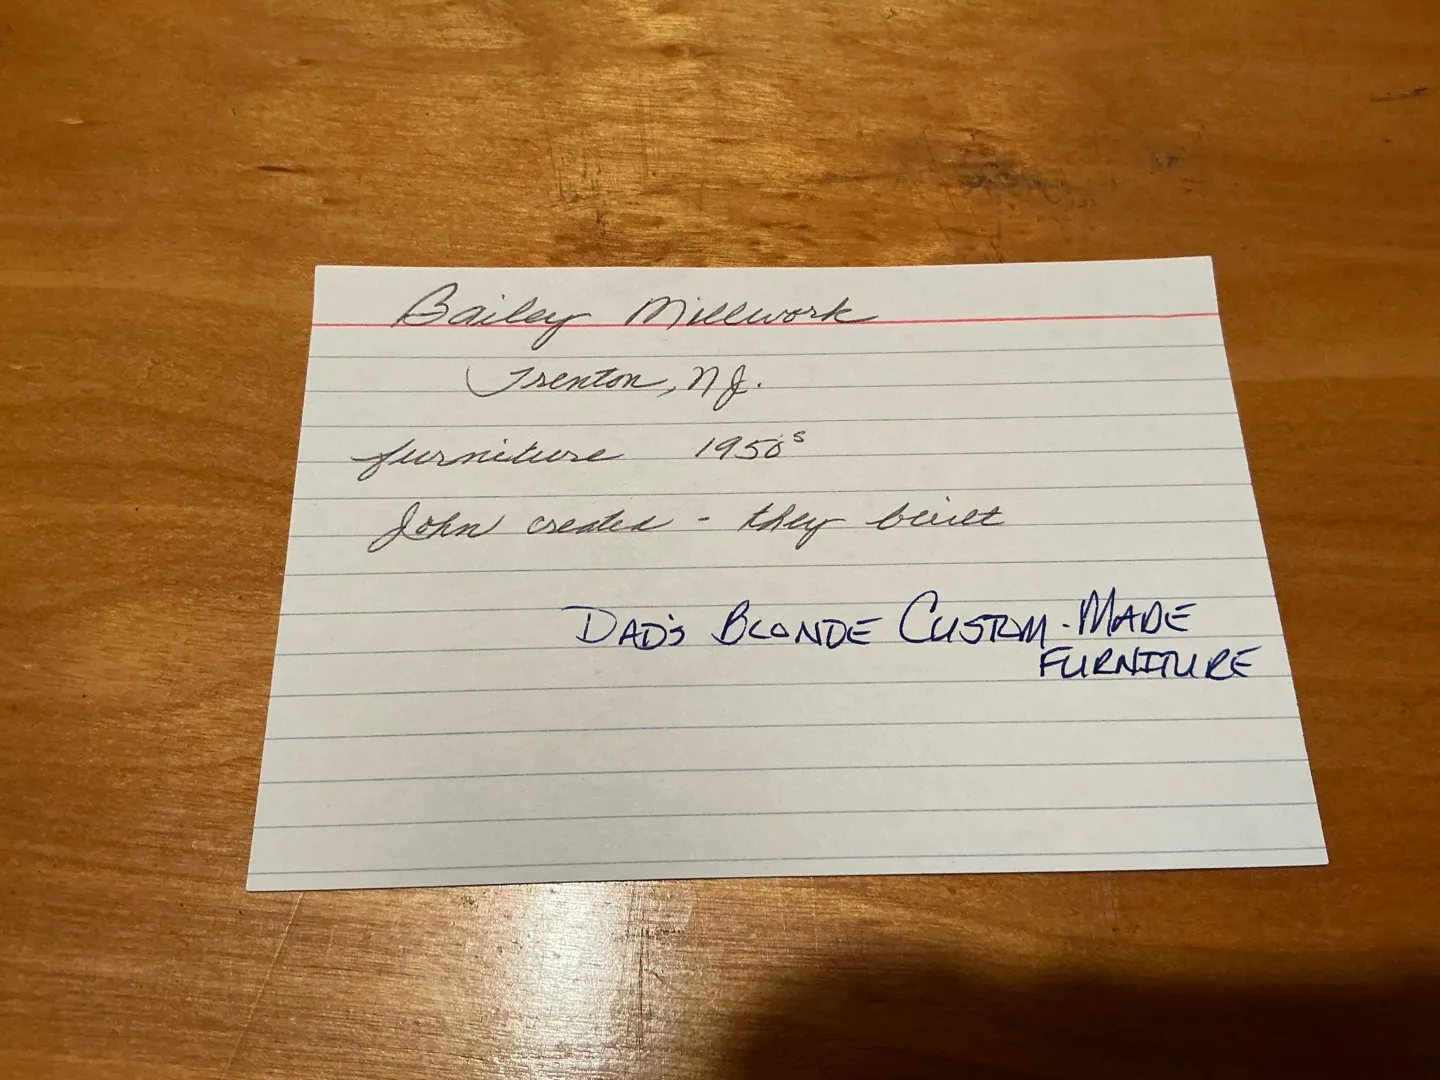 Bailey Millwork
Trenton, NJ.
furniture 1950s
John created - they built
DAD'S BLONDE CUSTOM-MADE
FURNITURE